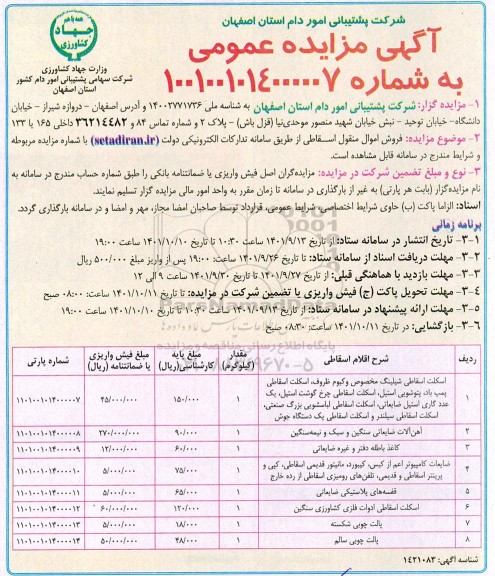 شرکت پشتیبانی امور دام استان اصفهان
آگهی مزایده عمومی
به شماره ۱۰۰۱۰۰۱۰۱۴۰۰۰۰۰۷
همه با هم
جهاد
کشاورزی
وزارت جهاد کشاورزی
شرکت سهامی پشتیبانی امور دام کشور
استان اصفهان
۱- مزایده گزار: شرکت پشتیبانی امور دام استان اصفهان به شناسه ملی ۱۴۰۰۲۷۷۱۷۳۶ و آدرس اصفهان - دروازه شیراز - خیابان
دانشگاه- خیابان توحید - نبش خیابان شهید منصور موحدی‌نیا (قزل باش) - پلاک ۲ و شماره تماس ۸۴ و ۳۶۲۱۴۴۸۲ داخلی ۱۶۵ یا ۱۳۳
۲- موضوع مزایده: فروش اموال منقول اسقاطی از طریق سامانه تدارکات الکترونیکی دولت (setadiran.ir) با شماره مزایده مربوطه
و شرایط مندرج در سامانه قابل مشاهده است.
۳- نوع و مبلغ تضمین شرکت در مزایده: مزایده‌گران اصل فیش واریزی یا ضمانتنامه بانکی را طبق شماره حساب مندرج در سامانه به
نام مزایده‌گزار (بابت هر پارتی) به غیر از بارگذاری در سامانه تا زمان مقرر به واحد امور مالی مزایده گزار تسلیم نمایند.
اسناد: الزاما پاکت (ب) حاوی شرایط اختصاصی، شرایط عمومی، قرارداد توسط صاحبان امضا مجاز، مهر و امضا و در سامانه بارگذاری گردد.
برنامه زمانی
۳-۱- تاریخ انتشار در سامانه ستاد: از تاریخ ۱۴۰۱/۹/۱۳ ساعت ۱۰:۳۰ تا تاریخ ۱۴۰۱/۱۰/۱۰ ساعت ۱۹:۰۰
۳-۲- مهلت دریافت اسناد از سامانه ستاد: تا تاریخ ۱۴۰۱/۹/۲۶ ساعت: ۱۹:۰۰ پس از واریز مبلغ ۵۰۰/۰۰۰ ریال
۳-۳- مهلت بازدید با هماهنگی قبلی: از تاریخ ۱۴۰۱/۹/۲۷ تا تاریخ ۱۴۰۱/۹/۳۰ ساعت ۹ الی ۱۲
۳-۴- مهلت تحویل پاکت (ج) فیش واریزی یا تضمین شرکت در مزایده: تا تاریخ ۱۴۰۱/۱۰/۱۱ ساعت: ۰۸:۰۰ صبح
۳-۵- مهلت ارائه پیشنهاد در سامانه ستاد: از تاریخ ۱۴۰۱/۰۹/۱۳ ساعت ۱۰:۳۰ تا تاریخ ۱۴۰۱/۱۰/۱۰ ساعت ۱۹:۰۰
۳-۶- بازگشایی: در تاریخ ۱۴۰۱/۱۰/۱۱ ساعت: ۰۸:۳۰ صبح
ردیف شرح اقلام اسقاطی مقدار (کیلوگرم) مبلغ پایه کارشناسی(ریال) مبلغ فیش واریزی یا ضمانتنامه (ریال) شماره پارتی
۱ اسکلت اسقاطی شیلینگ مخصوص وکیوم ظروف، اسکلت اسقاطی
پمپ باد، پتوشویی استیل، اسکلت اسقاطی چرخ گوشت استیل، یک
عدد گاری استیل ضایعاتی، اسکلت اسقاطی لباسشویی بزرگ صنعتی،
اسکلت اسقاطی سیلندر و اسکلت اسقاطی یک دستگاه جوش ۱ ۱۵۰/۰۰۰ ۴۵/۰۰۰/۰۰۰ ۱۱۰۱۰۰۱۰۱۴۰۰۰۰۰۷
۲ آهن‌آلات ضایعاتی سنگین و سبک و نیمه‌سنگین ۱ ۹۰/۰۰۰ ۲۷۰/۰۰۰/۰۰۰ ۱۱۰۱۰۰۱۰۱۴۰۰۰۰۰۸
۳ کاغذ باطله دفتر و غیره ضایعاتی ۱ ۶۰/۰۰۰ ۱۲/۰۰۰/۰۰۰ ۱۱۰۱۰۰۱۰۱۴۰۰۰۰۰۹
۴ ضایعات کامپیوتر اعم از کیس، کیبورد، مانیتور قدیمی اسقاطی، کپی و
پرینتر اسقاطی و قدیمی، تلفن‌های رومیزی اسقاطی از رده خارج ۱ ۷۵/۰۰۰ ۵/۰۰۰/۰۰۰ ۱۱۰۱۰۰۱۰۱۴۰۰۰۰۱۰
۵ قفسه‌های پلاستیکی ضایعاتی ۱ ۶۵/۰۰۰ ۵/۰۰۰/۰۰۰ ۱۱۰۱۰۰۱۰۱۴۰۰۰۰۱۱
۶ اسکلت اسقاطی ادوات فلزی کشاورزی سنگین ۱ ۱۲۰/۰۰۰ ۶۰/۰۰۰/۰۰۰ ۱۱۰۱۰۰۱۰۱۴۰۰۰۰۱۲
۷ پالت چوبی شکسته ۱ ۱۸/۰۰۰ ۵/۰۰۰/۰۰۰ ۱۱۰۱۰۰۱۰۱۴۰۰۰۰۱۳
۸ پالت چوبی سالم ۱ ۴۸/۰۰۰ ۵۰/۰۰۰/۰۰۰ ۱۱۰۱۰۰۱۰۱۴۰۰۰۰۱۴
شناسه آگهی: ۱۴۲۱۰۸۳